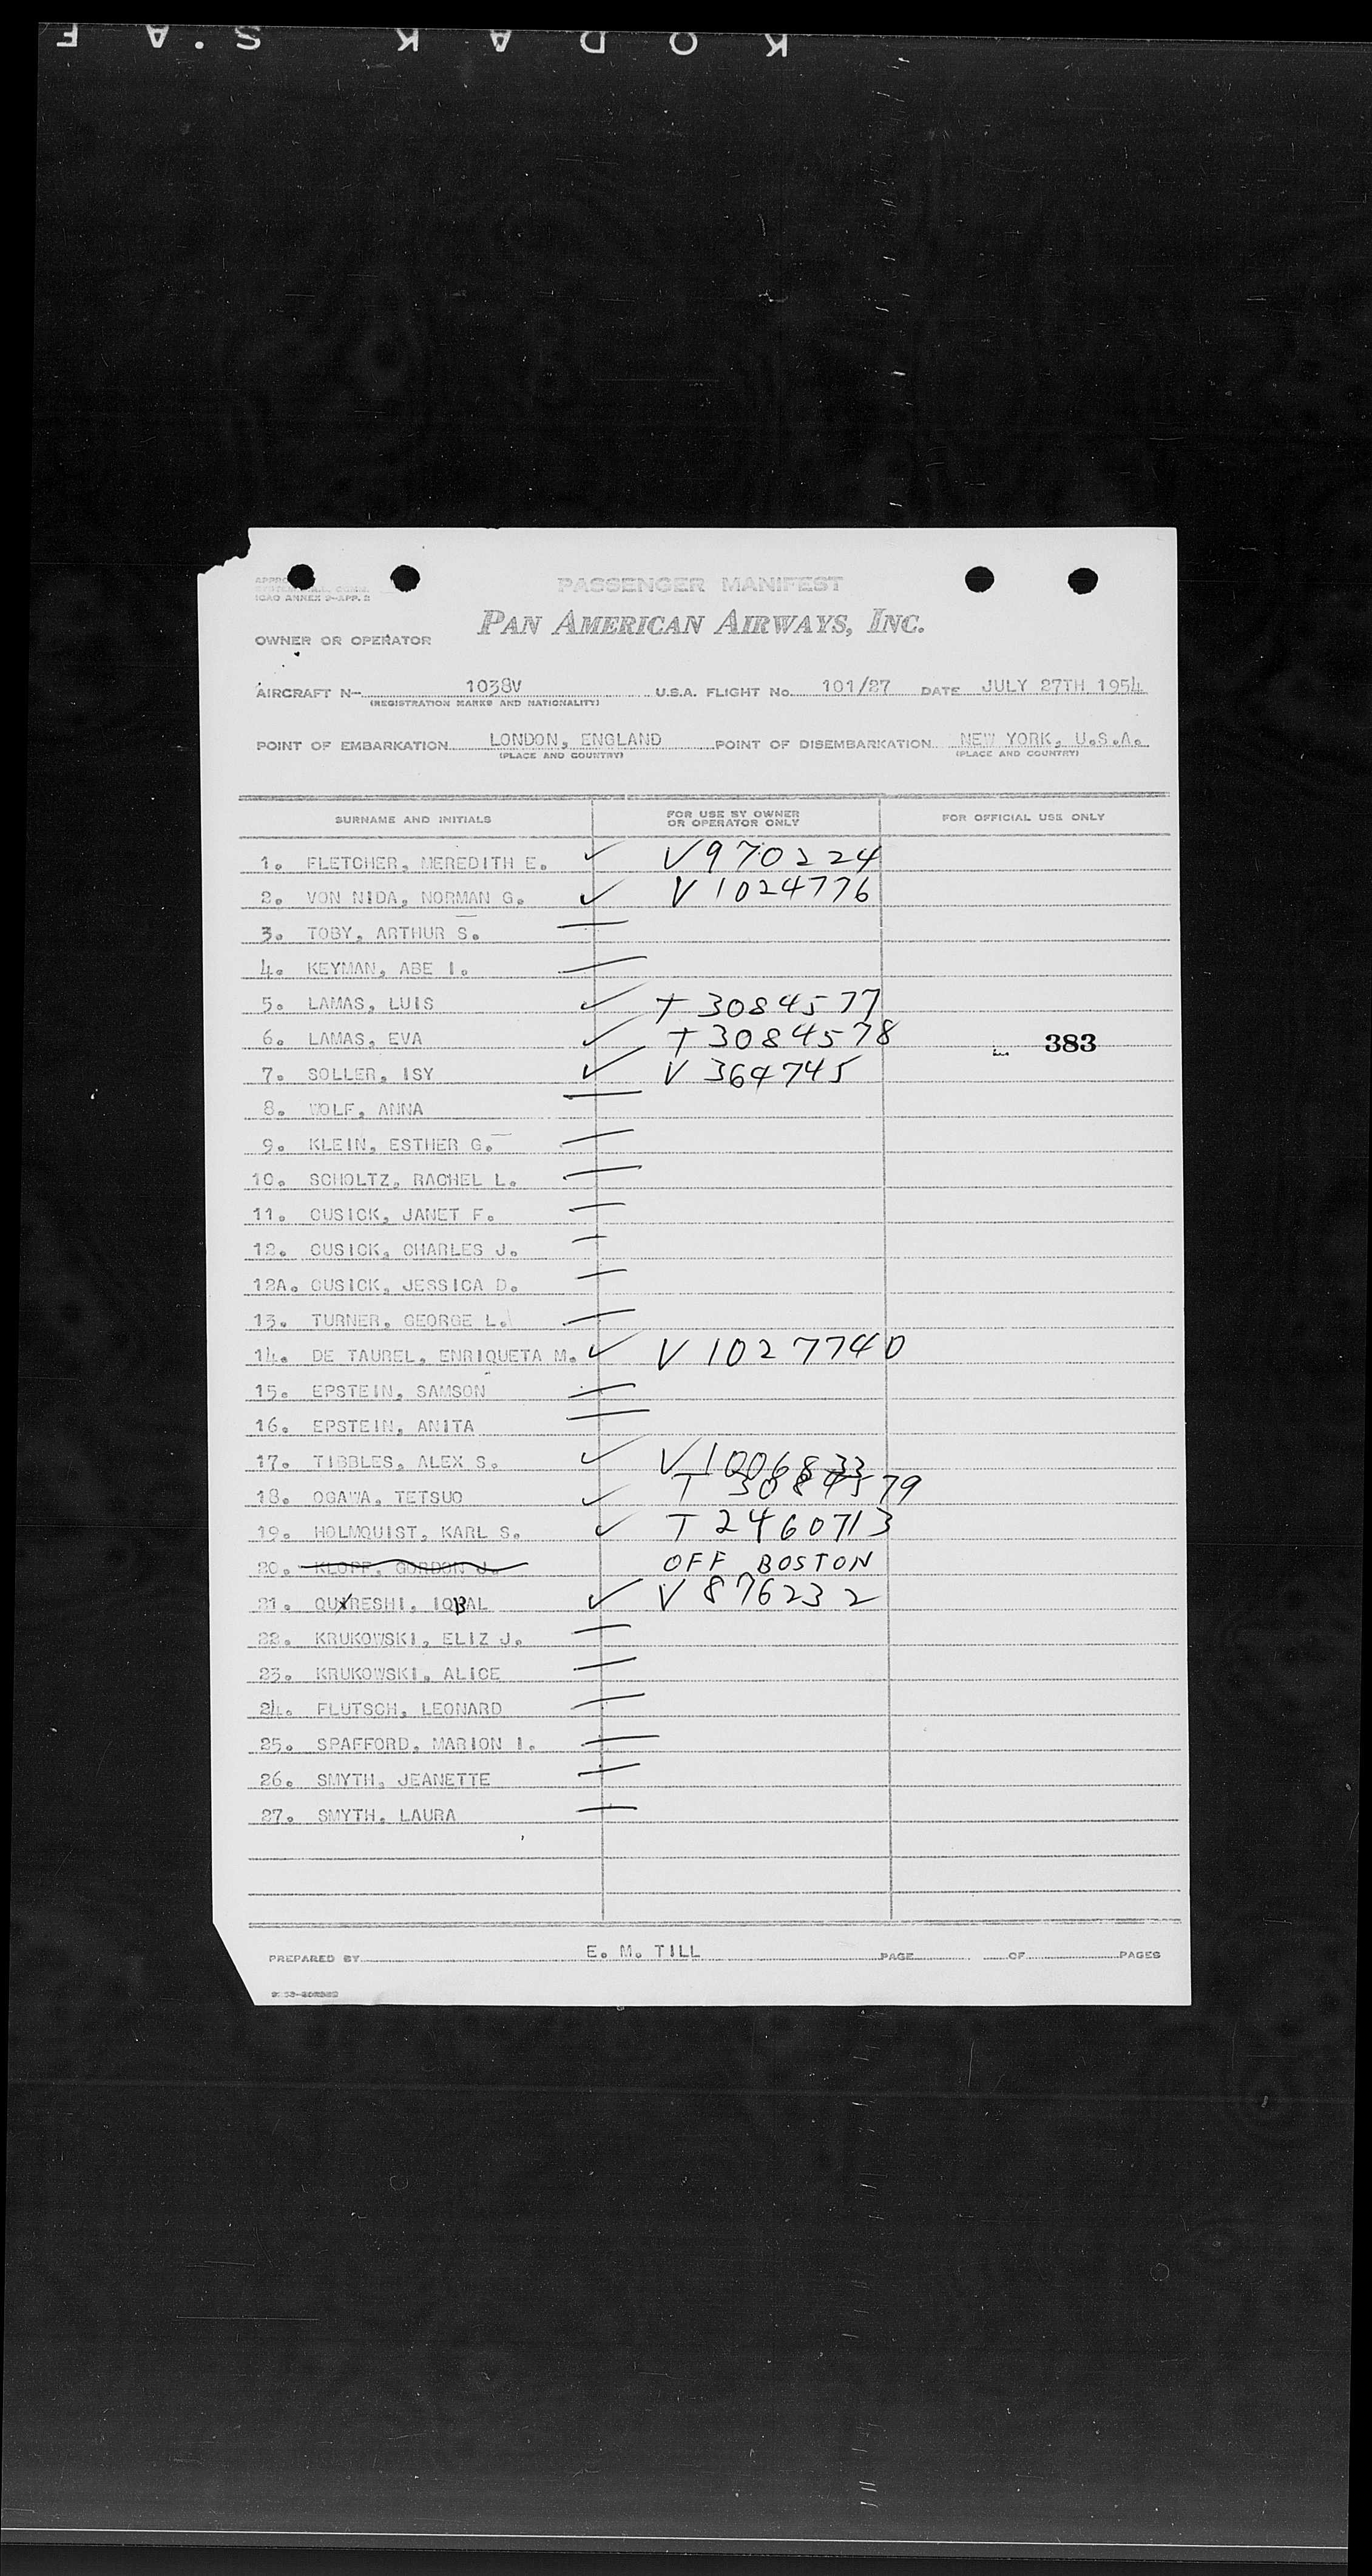 KODAK S.A F
PASSENGER MANIFEST
ICAO ANNEX 9-APP. 2
PAN AMERICAN AIRWAYS, INC.
OWNER OR OPERATOR
AIRCRAFT N- 1038V U.S.A. FLIGHT No. 101/27 DATE JULY 27TH 1954
(REGISTRATION MARKS AND NATIONALITY)
POINT OF EMBARKATION LONDON, ENGLAND POINT OF DISEMBARKATION NEW YORK, U.S.A.
(PLACE AND COUNTRY) (PLACE AND COUNTRY)
SURNAME AND INITIALS FOR USE BY OWNER OR OPERATOR ONLY FOR OFFICIAL USE ONLY
1. FLETCHER, MEREDITH E. ✓ V970224
2. VON NIDA, NORMAN G. ✓ V1024776
3. TOBY, ARTHUR S. —
4. KEYMAN, ABE I. —
5. LAMAS, LUIS ✓ T 3084577
6. LAMAS, EVA ✓ T 3084578 383
7. SOLLER, ISY ✓ V 364745
8. WOLF, ANNA —
9. KLEIN, ESTHER G. —
10. SCHOLTZ, RACHEL L. —
11. CUSICK, JANET F. —
12. CUSICK, CHARLES J. —
12A. CUSICK, JESSICA D. —
13. TURNER, GEORGE L. —
14. DE TAUREL, ENRIQUETA M. ✓ V 1027740
15. EPSTEIN, SAMSON —
16. EPSTEIN, ANITA —
17. TIBBLES, ALEX S. ✓ V 1006833
18. OGAWA, TETSUO ✓ T 3084579
19. HOLMQUIST, KARL S. ✓ T 2460713
20. KLOPF, GORDON J. OFF BOSTON
21. QUXRESHI, IQBAL ✓ V 876232
22. KRUKOWSKI, ELIZ J. —
23. KRUKOWSKI, ALICE —
24. FLUTSCH, LEONARD —
25. SPAFFORD, MARION I. —
26. SMYTH, JEANETTE —
27. SMYTH, LAURA —
PREPARED BY E. M. TILL PAGE OF PAGES